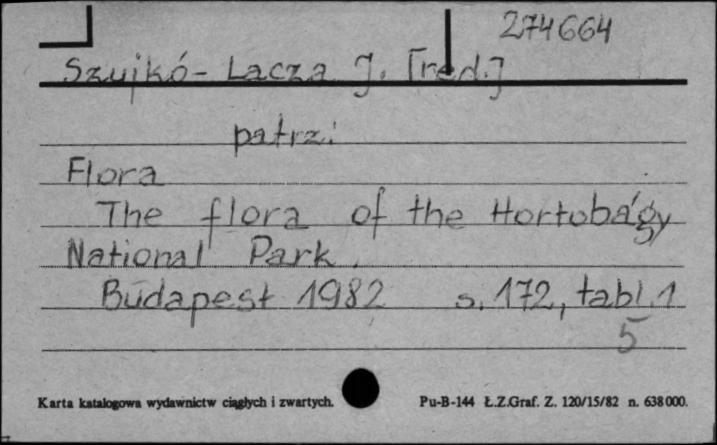 274664
Szujkó-Lacza J. [red.]
patrz:
Flora
The flora of the Hortobágy
National Park.
Budapest 1982 s. 172, tabl. 1
5
Karta katalogowa wydawnictw ciągłych i zwartych. Pu-B-144 Ł.Z.Graf. Z. 120/15/82 n. 638000.